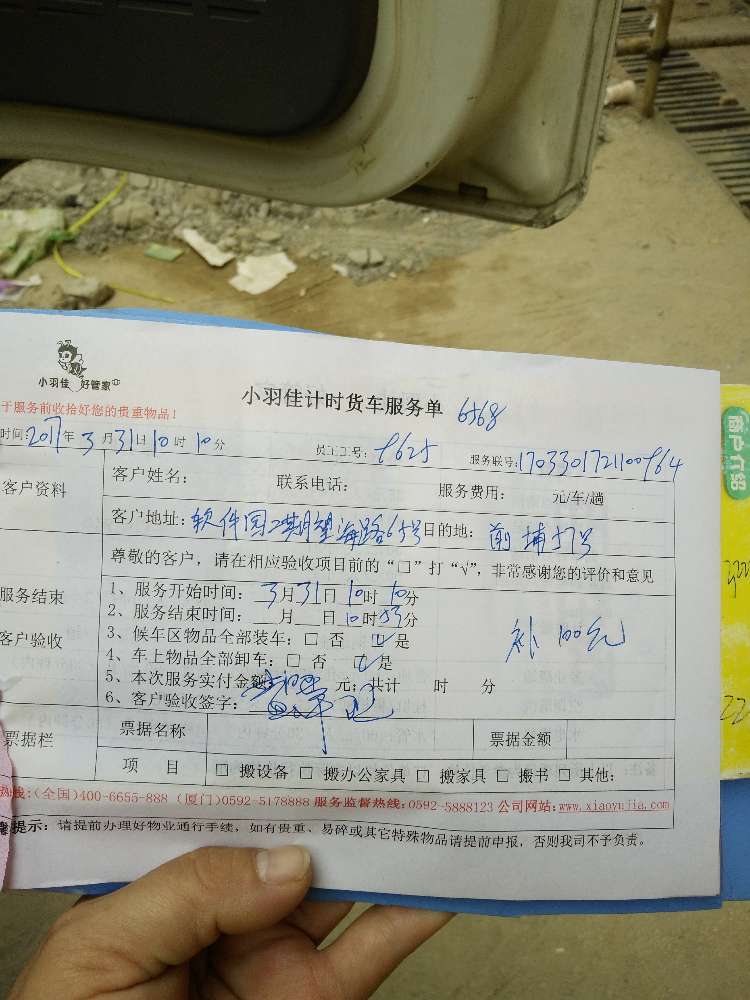 小羽佳 好管家
小羽佳计时货车服务单 6568
于服务前收拾好您的贵重物品！
时间: 2017年3月31日10时10分 员工工号: 8625 服务联号: 170330172100864
客户资料 客户姓名: 联系电话: 服务费用: 元/车/趟
客户地址: 软件园二期望海路65号 目的地: 前埔57号
尊敬的客户，请在相应验收项目前的“□”打“√”，非常感谢您的评价和意见
服务结束
客户验收
1、服务开始时间: 3月31日10时10分
2、服务结束时间: 月 日10时53分
3、候车区物品全部装车: □ 否 ☑是
4、车上物品全部卸车: □ 否 ☑是
补 100元
5、本次服务实付金额: 元; 共计 时 分
6、客户验收签字:
票据栏 票据名称 票据金额
项 目 □ 搬设备 □ 搬办公家具 □ 搬家具 □ 搬书 □ 其他:
热线:(全国)400-6655-888 (厦门)0592-5178888 服务监督热线:0592-5888123 公司网站:www.xiaoyujia.com
提示: 请提前办理好物业通行手续，如有贵重、易碎或其它特殊物品请提前申报，否则我司不予负责。
商户介绍